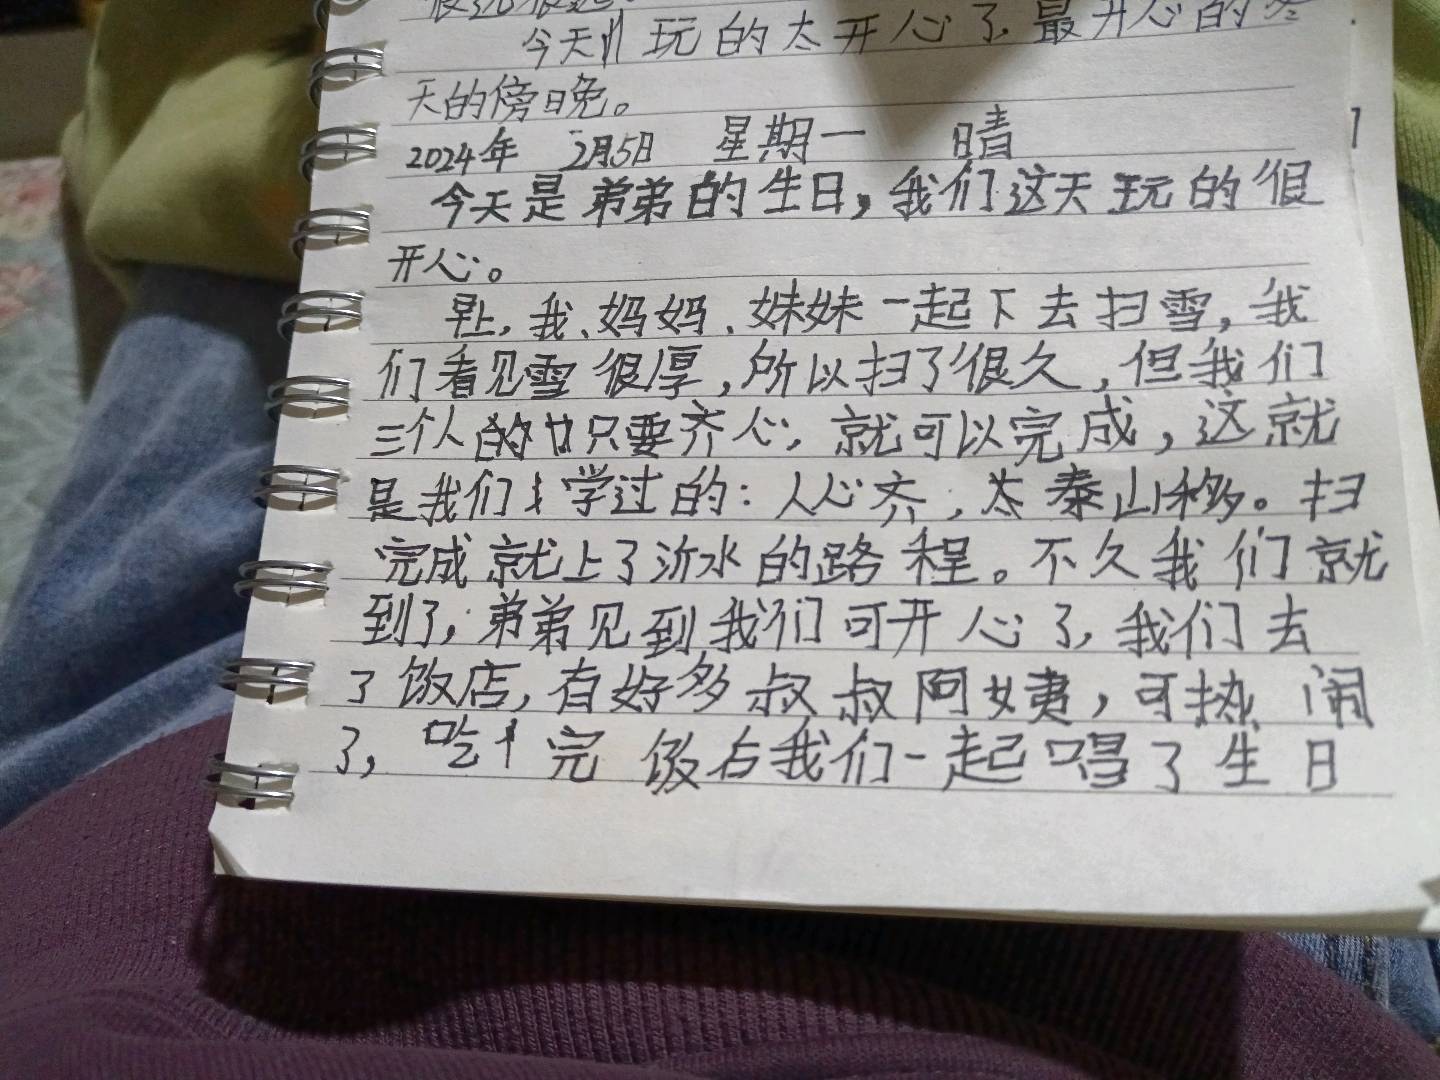 今天玩的太开心了，最开心的冬
天的傍晚。
2024年 2月5日 星期一 晴
今天是弟弟的生日，我们这天玩的很
开心。
早上，我、妈妈、妹妹一起下去扫雪，我
们看见雪很厚，所以扫了很久，但我们
三个人的只要齐心，就可以完成，这就
是我们学过的：人心齐，泰山移。扫
完成就上了沂水的路程。不久我们就
到了，弟弟见到我们可开心了，我们去
了饭店，有好多叔叔阿姨，可热闹
了，吃完饭后我们一起唱了生日